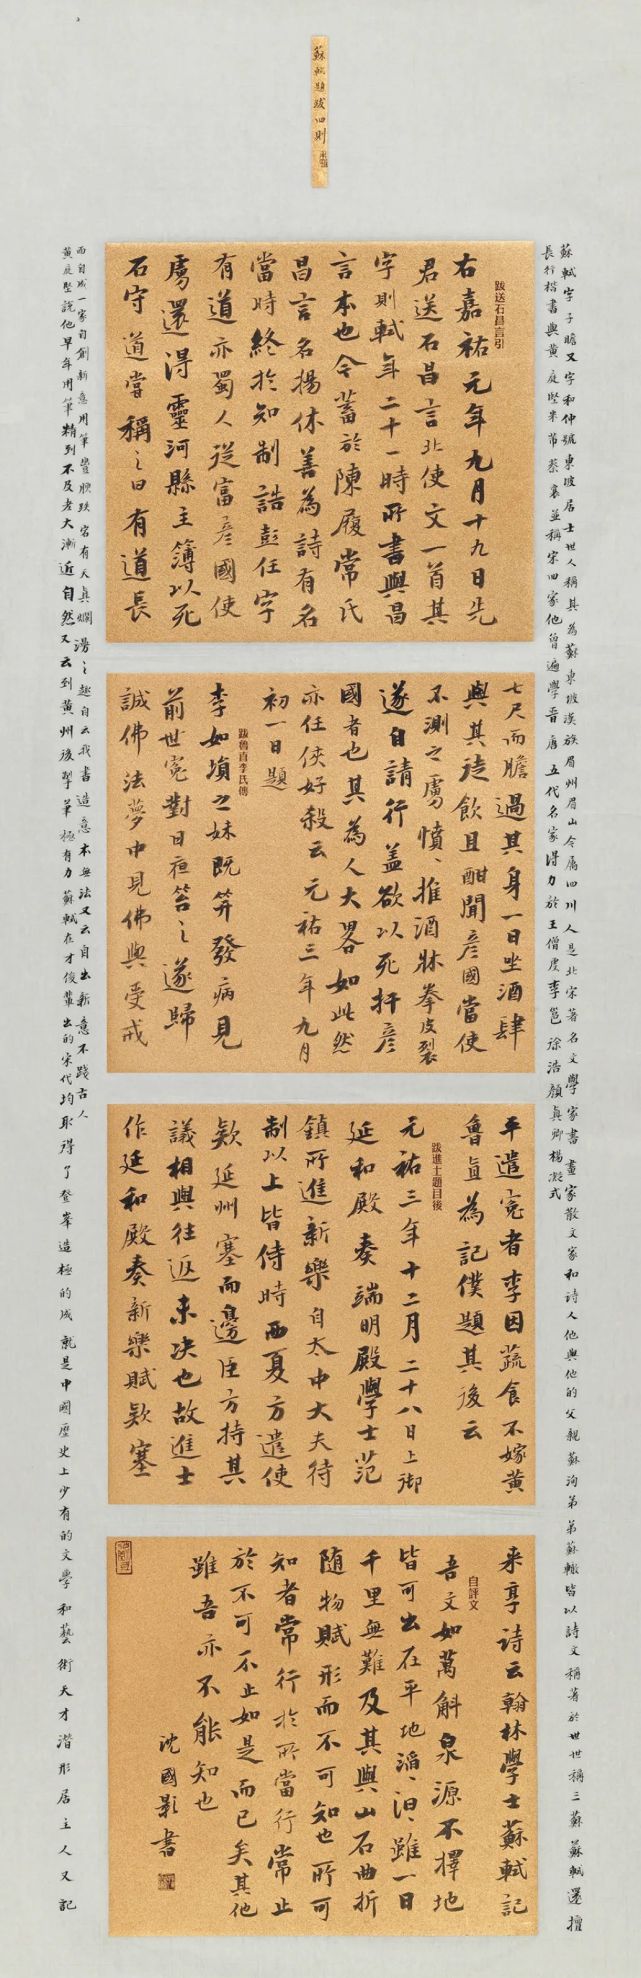 蘇軾題跋四則
蘇軾字子瞻又字和仲號東坡居士世人稱其為蘇東坡漢族眉州眉山今屬四川人是北宋著名文學家書畫家散文家和詩人他與他的父親蘇洵弟弟蘇轍皆以詩文稱著於世世稱三蘇蘇軾還擅
長行楷書與黃庭堅米芾蔡襄並稱宋四家他曾遍學晉唐五代名家得力於王僧虔李邕徐浩顏真卿楊凝式
跋送石昌言引
右嘉祐元年九月十九日先
君送石昌言北使文一首其
字則軾年二十一時所書與昌
言本也今蓄於陳履常氏
昌言名揚休善為詩有名
當時終於知制誥彭任字
有道亦蜀人從富彥國使
虜還得靈河縣主簿以死
石守道嘗稱之曰有道長
七尺而膽過其身一日坐酒肆
與其徒飲且酣聞彥國當使
不測之虜憤憤推酒牀拳皮裂
遂自請行蓋欲以死扞彥
國者也其為人大畧如此然
亦任俠好殺云元祐三年九月
初一日題
跋魯直李氏傳
李如塤之妹既笄發病見
前世冤對日夜笞之遂歸
誠佛法夢中見佛與受戒
平遣冤者李因蔬食不嫁黃
魯直為記僕題其後云
跋進士題目後
元祐三年十二月二十八日上御
延和殿奏端明殿學士范
鎮所進新樂自太中大夫待
制以上皆侍時西夏方遣使
欵延州塞而邊臣方持其
議相與往返未決也故進士
作延和殿奏新樂賦欵塞
來享詩云翰林學士蘇軾記
自評文
吾文如萬斛泉源不擇地
皆可出在平地滔滔汩汩雖一日
千里無難及其與山石曲折
隨物賦形而不可知也所可
知者常行於所當行常止
於不可不止如是而已矣其他
雖吾亦不能知也
沈國影書
而自成一家自創新意用筆豐腴跌宕有天真爛漫之趣自云我書造意本無法又云自出新意不踐古人
黃庭堅說他早年用筆精到不及老大漸近自然又云到黃州後掣筆極有力蘇軾在才俊輩出的宋代均取得了登峯造極的成就是中國歷史上少有的文學和藝術天才潛形居主人又記